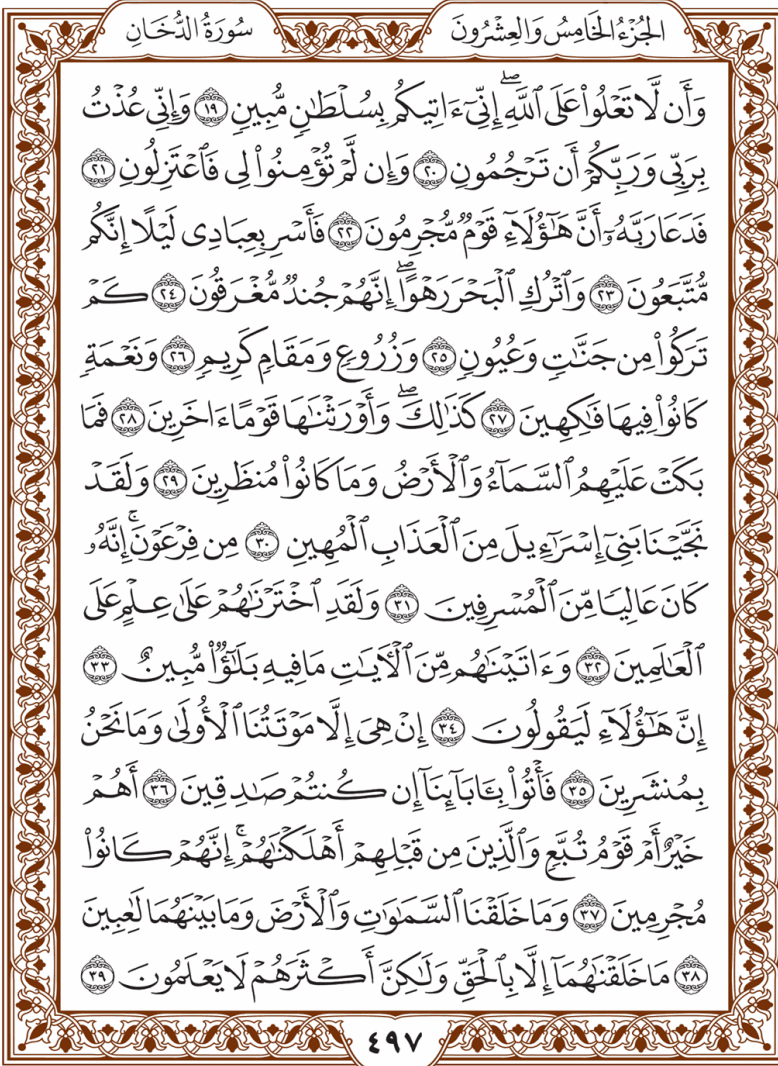 الجزء الخامس والعشرون
سورة الدخان
وَأَن لَّا تَعْلُوا۟ عَلَى ٱللَّهِۖ إِنِّىٓ ءَاتِيكُم بِسُلْطَـٰنٍ مُّبِينٍ ١٩ وَإِنِّى عُذْتُ
بِرَبِّى وَرَبِّكُمْ أَن تَرْجُمُونِ ٢٠ وَإِن لَّمْ تُؤْمِنُوا۟ لِى فَٱعْتَزِلُونِ ٢١
فَدَعَا رَبَّهُۥٓ أَنَّ هَـٰٓؤُلَآءِ قَوْمٌ مُّجْرِمُونَ ٢٢ فَأَسْرِ بِعِبَادِى لَيْلًا إِنَّكُم
مُّتَّبَعُونَ ٢٣ وَٱتْرُكِ ٱلْبَحْرَ رَهْوًاۖ إِنَّهُمْ جُندٌ مُّغْرَقُونَ ٢٤ كَمْ
تَرَكُوا۟ مِن جَنَّـٰتٍ وَعُيُونٍ ٢٥ وَزُرُوعٍ وَمَقَامٍ كَرِيمٍ ٢٦ وَنَعْمَةٍ
كَانُوا۟ فِيهَا فَـٰكِهِينَ ٢٧ كَذَٰلِكَۖ وَأَوْرَثْنَـٰهَا قَوْمًا ءَاخَرِينَ ٢٨ فَمَا
بَكَتْ عَلَيْهِمُ ٱلسَّمَآءُ وَٱلْأَرْضُ وَمَا كَانُوا۟ مُنظَرِينَ ٢٩ وَلَقَدْ
نَجَّيْنَا بَنِىٓ إِسْرَٰٓءِيلَ مِنَ ٱلْعَذَابِ ٱلْمُهِينِ ٣٠ مِن فِرْعَوْنَۚ إِنَّهُۥ
كَانَ عَالِيًا مِّنَ ٱلْمُسْرِفِينَ ٣١ وَلَقَدِ ٱخْتَرْنَـٰهُمْ عَلَىٰ عِلْمٍ عَلَى
ٱلْعَـٰلَمِينَ ٣٢ وَءَاتَيْنَـٰهُم مِّنَ ٱلْـَٔايَـٰتِ مَا فِيهِ بَلَـٰٓؤٌا۟ مُّبِينٌ ٣٣
إِنَّ هَـٰٓؤُلَآءِ لَيَقُولُونَ ٣٤ إِنْ هِىَ إِلَّا مَوْتَتُنَا ٱلْأُولَىٰ وَمَا نَحْنُ
بِمُنشَرِينَ ٣٥ فَأْتُوا۟ بِـَٔابَآئِنَآ إِن كُنتُمْ صَـٰدِقِينَ ٣٦ أَهُمْ
خَيْرٌ أَمْ قَوْمُ تُبَّعٍ وَٱلَّذِينَ مِن قَبْلِهِمْ أَهْلَكْنَـٰهُمْۚ إِنَّهُمْ كَانُوا۟
مُجْرِمِينَ ٣٧ وَمَا خَلَقْنَا ٱلسَّمَـٰوَٰتِ وَٱلْأَرْضَ وَمَا بَيْنَهُمَا لَـٰعِبِينَ
٣٨ مَا خَلَقْنَـٰهُمَآ إِلَّا بِٱلْحَقِّ وَلَـٰكِنَّ أَكْثَرَهُمْ لَا يَعْلَمُونَ ٣٩
٤٩٧